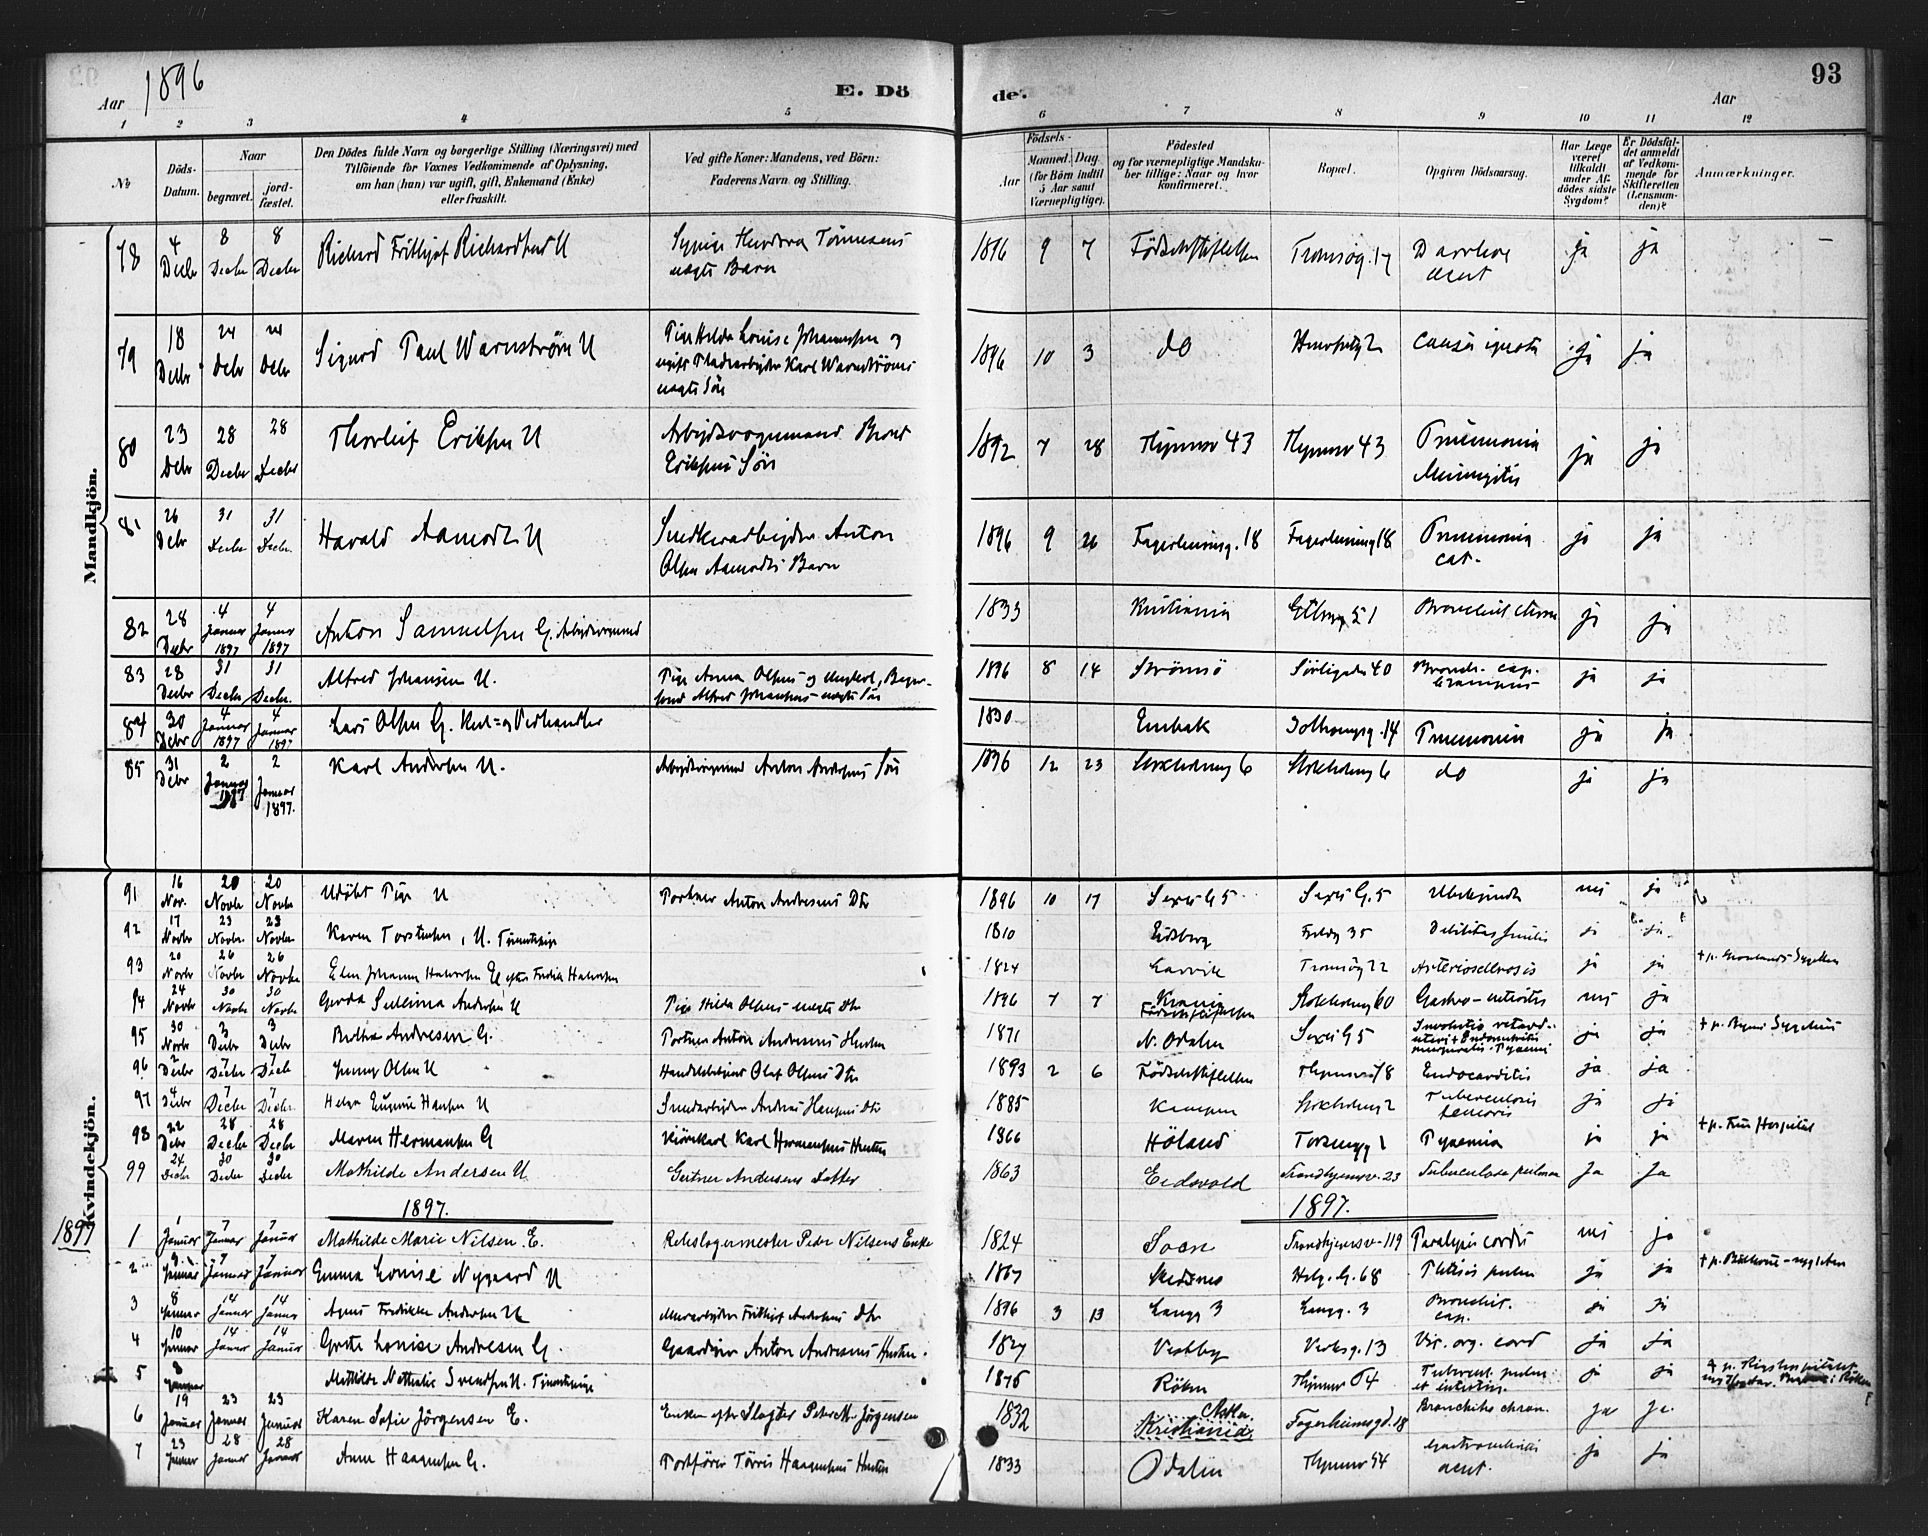 1896
Aar
E. Dö
de.
Aar
93
1 2 3 4 5 6 7 8 9 10 11 12
No
Döds-Datum.
Naar
begravet.
jord-fæstet.
Den Dödes fulde Navn og borgerlige Stilling (Næringsvei) med
Tilföiende for Voxnes Vedkommende af Oplysning,
om han (hun) var ugift, gift, Enkemand (Enke)
eller fraskilt.
Ved gifte Koner: Mandens, ved Börn:
Faderens Navn og Stilling.
Födsels-
Aar
Maaned. Dag
(for Börn indtil
5 Aar samt
Værnepligtige).
Födested
og for værnepligtige Mandska-
ber tillige: Naar og hvor
konfirmeret.
Bopæl.
Opgiven Dödsaarsag.
Har Læge
været
tilkaldt
under Af-
dödes sidste
Sygdom?
Er Dödsfal-
det anmeldt
af Vedkom-
mende for
Skifteretten
(Lensman-
den)?
Anmærkninger.
Mandkjön.
78 4 Decbr 8 Decbr 8 Decbr Richard Frithjof Richardsen U Tönnesens uægte Barn 1896 9 7 Födselsstiftelsen Tromsøg. 17 Diarrhoe acut ja ja
79 18 Decbr 24 Debr 24 Debr Sigurd Paul Warnström U Pige Hilda Louise Johannsen og ugift Karl Warnströms uægte Sön 1896 10 3 do causa ignota ja ja
80 23 Debr 28 Decbr 28 Decbr Thorleif Eriksen U Arbejdsvognmand Eriksens Sön 1892 7 28 Thjemsv 43 Thjemsv 43 Pneumonia Meningitis ja ja
81 26 Debr 31 Decbr 31 Decbr Harald Aamodt U Snedkerarbejder Anton Olsen Aamodts Barn 1896 9 26 Fagerheimsg. 18 Fagerheimsg 18 Pneumonia cat. ja ja
82 28 Decbr 4 Januar 1897 4 Januar 1897 Anton Samuelsen G. 1833 Kristiania 51 Bronchit chron ja ja
83 28 Decbr 31 Decbr 31 Decbr Alfred Johansen U. Pige Anna Olsens og Ungkarl, Alfred Johansens uægte Sön 1896 8 14 Strömsö Sörligaden 40 Bronch. cap. ja ja
84 30 Debr 4 Januar 1897 4 Januar 1897 Lars Olsen G. Kul- og Vedhandler 1830 Enebak 14 Pneumonia ja ja
85 31 Debr 2 Januar 1897 2 Januar 1897. Karl Andersen U. Arbejdsvognmand Anton Andersens Sön 1896 12 23 Stokholmsg 6 Stokholmsg 6 do ja ja
Kvindekjön.
91 16 Nov. 20 Novbr 20 Novbr Udöbt Pige U Portner Anton Andresens Dtr 1896 10 17 Sexes G 5 Sexes G. 5 Ubekjendt nei ja
92 17 Novbr 23 Novbr. 23 Novbr. Karen Torstensen, U. 1810 Eidsberg 35 Debilitas senilis ja ja
93 20 Novbr 26 Novbr 26 Novbr Elen Johanne Halvorsen E efter Fredrik Halvorsen 1824 Larvik Tromsög 22 Arteriosclerosis ja ja + p. Grønlands Sygehus
94 24 Novbr 30 Novbr 30 Novbr Gerda Selima Andersen U Pige Hilda Olsens uægte Dtr 1896 7 7 Krania Födselsstiftelsen Stokholmsg 60 Gastro-enteritis nei ja
95 30 Novbr 3 Decbr 3 Decbr Bertha Andresen G. Portner Anton Andresens Hustru 1871 N. Odalen Sexes G 5 Involutio retard. uteri + Endometritis puerperalis. Pyæmi ja ja + p. Byens Sygehus
96 2 Decbr 7 Decbr 7 Decbr Jenny Olsen U Handelsbetjent Olaf Olsens Dtr 1893 2 6 Födselsstiftelsen 8 Endocarditis ja ja
97 4 Decbr 7 Decbr 7 Decbr. Helga Eugenie Hansen U Smedarbejder Andreas Hansens Dtr 1885 Kampen Stokholmsg 2 Tuberculosis femoris ja ja
98 22 Debr 28 Decbr 28 Decbr Maren Hermansen G Kjörekarl Karl Hermansens Hustru 1866 Höland 1 Pyæmia ja ja
99 24 Decbr 30 Decbr 30 Decbr Mathilde Andersen U. Andersens Datter 1863 Eidsvold Trondhjemsv. 23 Tuberculose pulmon ja ja
1897.
1897.
1897
1 1 Januar 7 Januar 7 Januar Mathilde Marie Nilsen. E. Rebslagermester Peder Nilsens Enke 1824 Soon Trondhjemsv - 119 Paralysis cordis nei ja
2 Januar 7 Januar 7 Januar Emma Louise Nygaard U 1867 Skedsmo Helg. G. 68 Phtisis pulm ja ja
3 8 Januar 14 Januar 14 Januar Agnes Fredrikke Andersen U Murarbejder Frithjof Andersens Dtr 1896 3 13 Langg 3 Langg. 3 Bronchit. cap. ja ja
4 10 Januar 14 Januar 14 Januar Grethe Louise Andresen G. Anton Andresens Hustru. 1827 Vestby Verksg. 13 Vic. org. cord ja ja
5 8 Januar Mathilde Nathalie Svendsen U. 1875 Röken Tubercul. pulm. et intestin. ja ja + p. Rigshospitalet
6 19 Januar 23 Januar 23 Januar Karen Sofie Jörgensen E. Enke efter Slagter Peter M. Jörgensen 1832 Kristiania Fagerheimsgd. 18 Bronchitis chron. ja ja
7 23 Januar 28 Januar 28 Januar Anne Haagensen G. Törris Haagensens Hustru 1833 Odalen Thjemsv 54 acut. ja ja